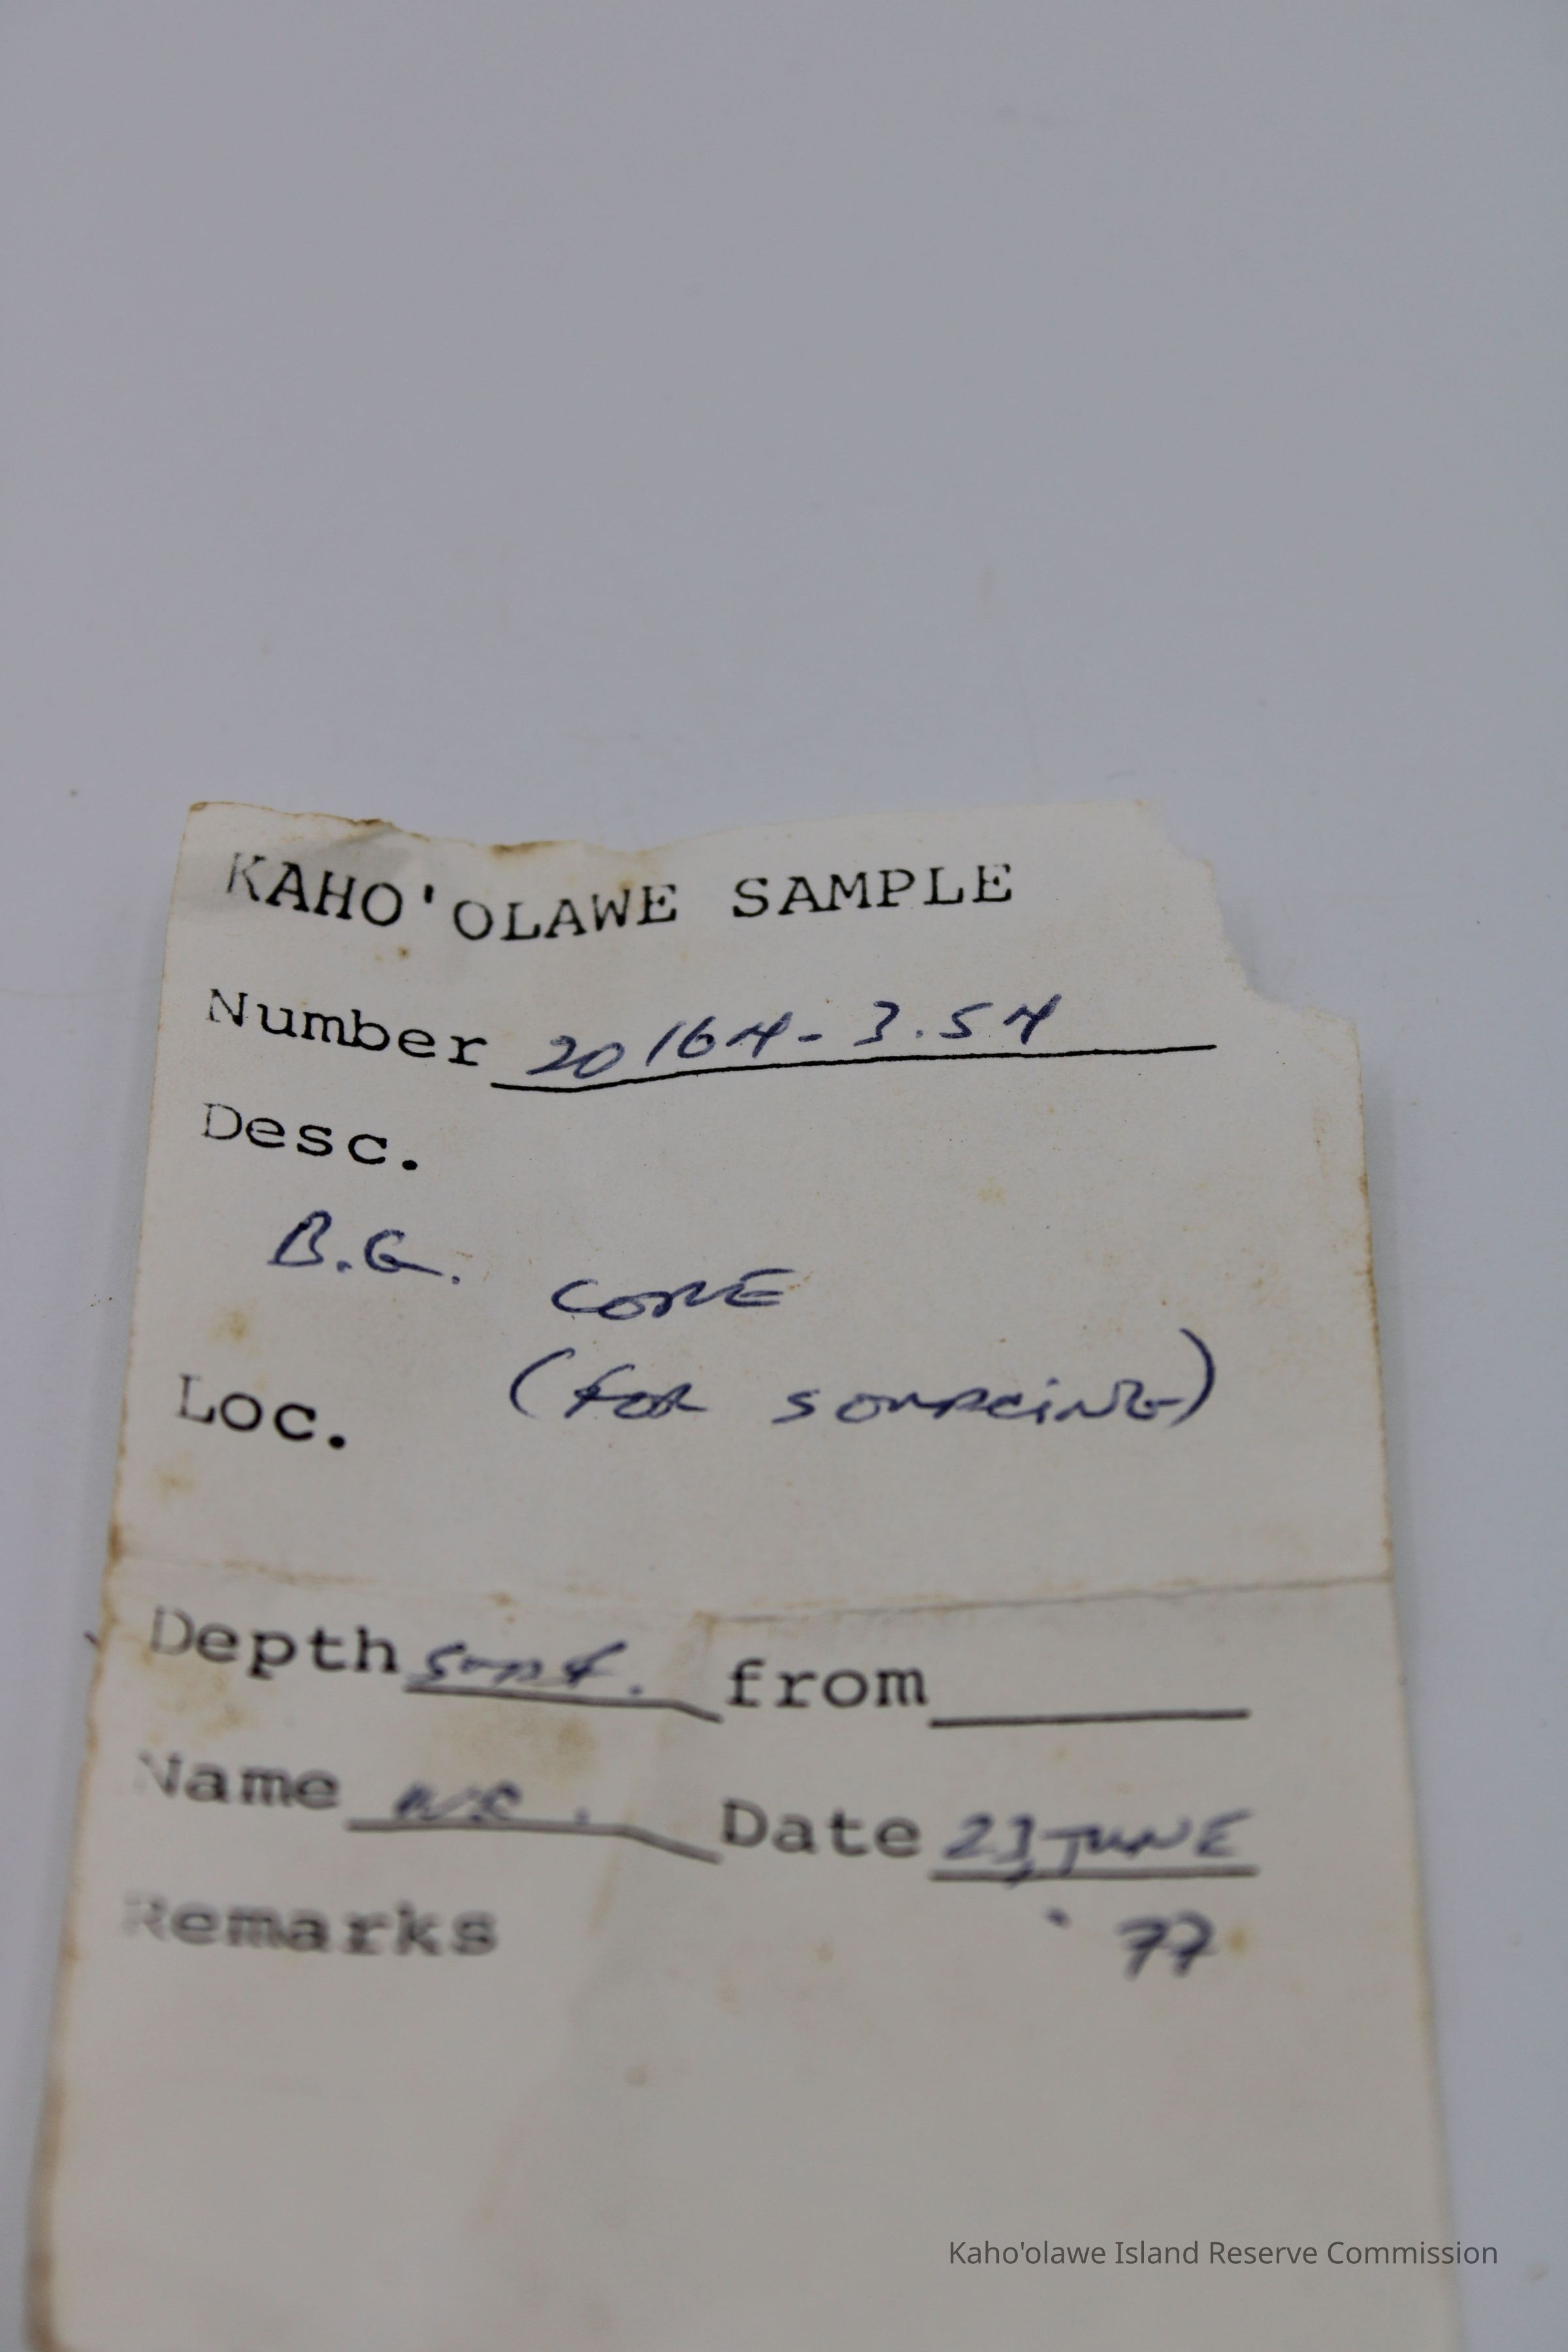 KAHO'OLAWE SAMPLE
Number 20164-3.54
Desc.
B.G. CORE
Loc. (FOR SOURCING)
Depth Surf. from
Name Date 23 JUNE
Remarks '77
Kaho'olawe Island Reserve Commission